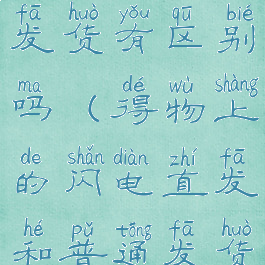 fā huò yǒu qū bié
发货有区别
ma dé wù shàng
吗（得物上
de shǎn diàn zhí fā
的闪电直发
hé pǔ tōng fā huò
和普通发货